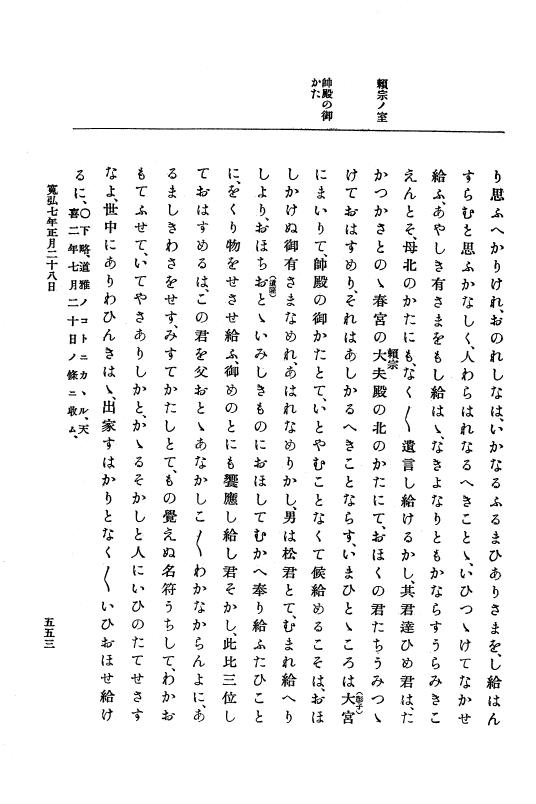 賴宗ノ室
帥殿の御
かた
り思ふへかりけれ、おのれしなは、いかなるふるまひありさまを、し給はん
すらむと思ふかなしく、人わらはれなるへきことゝ、いひつゝけてなかせ
給ふ、あやしき有さまをもし給はゝ、なきよなりともかならすうらみきこ
えんとそ、母北のかたにも、なく〳〵遺言し給けるかし、其君達ひめ君は、た
かつかさとのゝ春宮の大夫殿の北のかたにて、おほくの君たちうみつゝ
賴宗
けておはすめり、それはあしかるへきことならす、いまひとゝころは大宮
(彰子)
にまいりて、帥殿の御かたとて、いとやむことなくて候給めるこそは、おほ
しかけぬ御有さまなめれ、あはれなめりかし、男は松君とて、むまれ給へり
しより、おほちおとゝいみしきものにおほしてむかへ奉り給ふたひこと
(道隆)
に、をくり物をせさせ給ふ、御めのとにも饗應し給し君そかし、此比三位し
ておはすめるは、この君を父おとゝあなかしこ〳〵わかなからんよに、あ
るましきわさをせす、みすてかたしとて、もの覺えぬ名符うちして、わかお
もてふせて、いてやさありしかと、かゝるそかしと人にいひのたてせさす
なよ、世中にありわひんきはゝ、出家すはかりとなく〳〵いひおほせ給け
るに、〇下略、道雅ノコトニカヽル、天
喜二年七月二十日ノ條ニ收ム、
寬弘七年正月二十八日
五五三